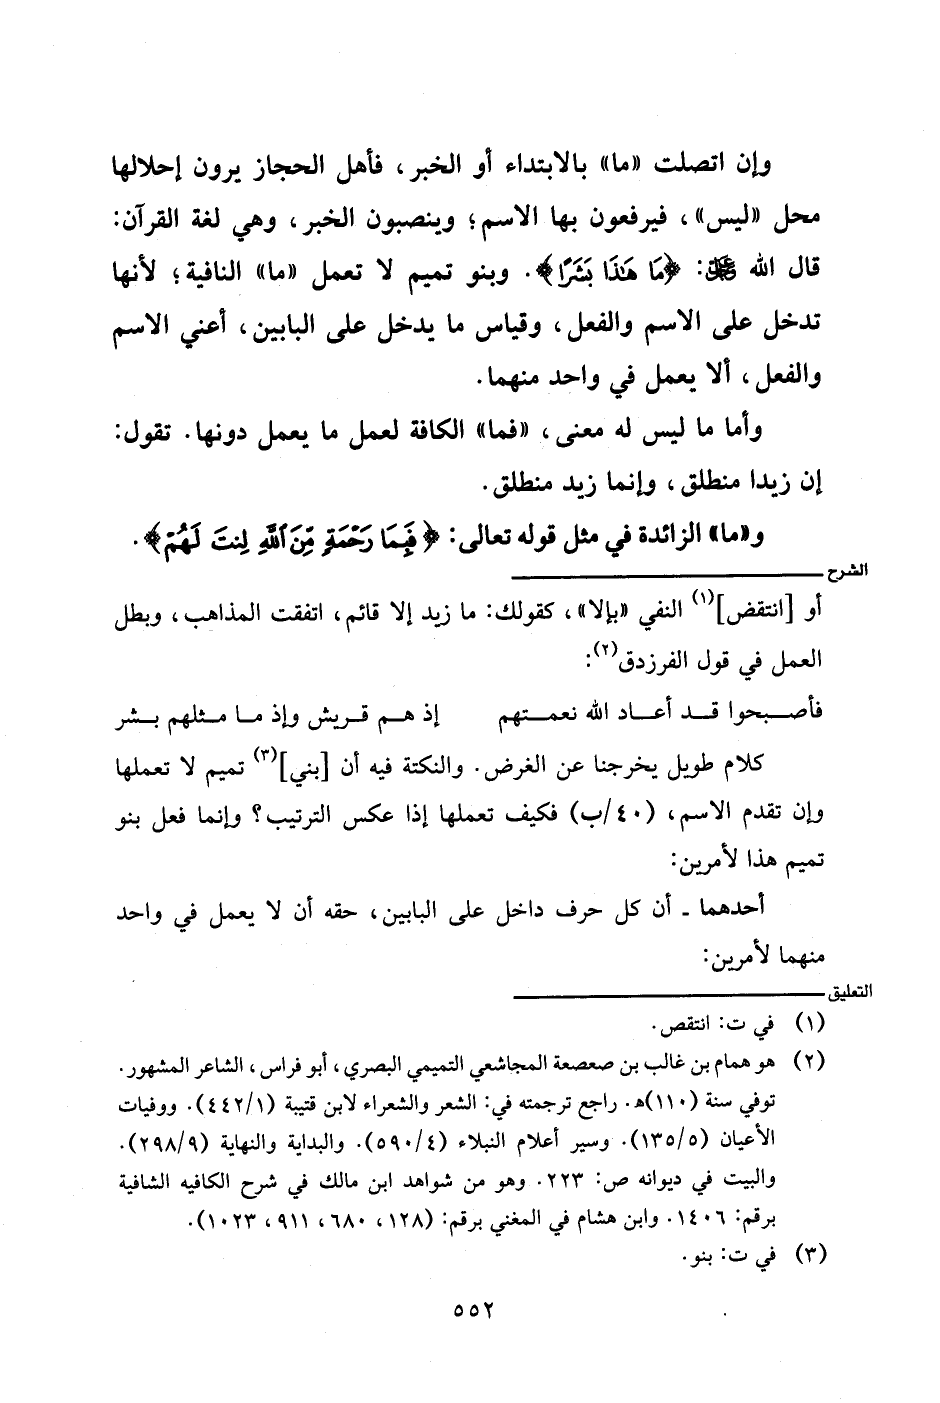 وإن اتصلت «ما» بالابتداء أو الخبر، فأهل الحجاز يرون إحلالها
محل «ليس»، فيرفعون بها الاسم؛ وينصبون الخبر، وهي لغة القرآن:
قال الله ﷻ: ﴿مَا هَٰذَا بَشَرًا﴾. وبنو تميم لا تعمل «ما» النافية؛ لأنها
تدخل على الاسم والفعل، وقياس ما يدخل على البابين، أعني الاسم
والفعل، ألا يعمل في واحد منهما.
وأما ما ليس له معنى، «فما» الكافة لعمل ما يعمل دونها. تقول:
إن زيدا منطلق، وإنما زيد منطلق.
و«ما» الزائدة في مثل قوله تعالى: ﴿فَبِمَا رَحْمَةٍ مِّنَ ٱللَّهِ لِنتَ لَهُمْ﴾.
الشرح
أو [انتقض](١) النفي «بإلا»، كقولك: ما زيد إلا قائم، اتفقت المذاهب، وبطل
العمل في قول الفرزدق(٢):
فأصبحوا قد أعاد الله نعمتهم إذ هم قريش وإذ ما مثلهم بشر
كلام طويل يخرجنا عن الغرض. والنكتة فيه أن [بني](٣) تميم لا تعملها
وإن تقدم الاسم، (٤٠/ب) فكيف تعملها إذا عكس الترتيب؟ وإنما فعل بنو
تميم هذا لأمرين:
أحدهما ـ أن كل حرف داخل على البابين، حقه أن لا يعمل في واحد
منهما لأمرين:
التعليق
(١) في ت: انتقص.
(٢) هو همام بن غالب بن صعصعة المجاشعي التميمي البصري، أبو فراس، الشاعر المشهور.
توفي سنة (١١٠)هـ. راجع ترجمته في: الشعر والشعراء لابن قتيبة (٤٤٢/١). ووفيات
الأعيان (١٣٥/٥). وسير أعلام النبلاء (٥٩٠/٤). والبداية والنهاية (٢٩٨/٩).
والبيت في ديوانه ص: ٢٢٣. وهو من شواهد ابن مالك في شرح الكافيه الشافية
برقم: ١٤٠٦. وابن هشام في المغني برقم: (١٢٨، ٦٨٠، ٩١١، ١٠٢٣).
(٣) في ت: بنو.
٥٥٢